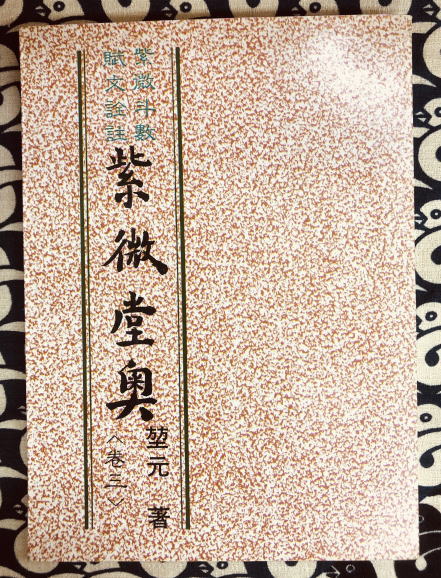 紫微斗數
賦文詮註
紫微堂奧
〈卷三〉
堃元 著